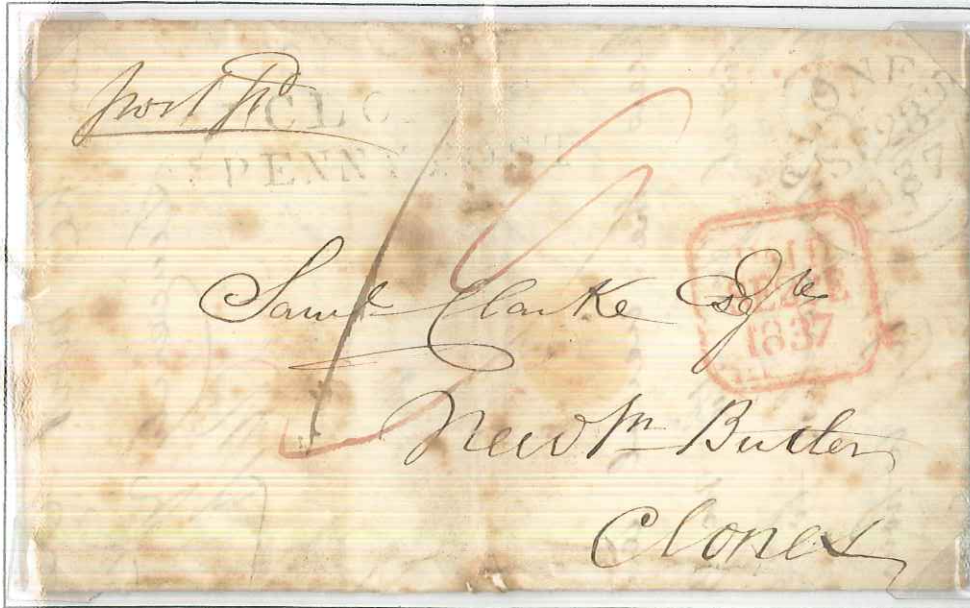 post pd
CLO
PENNY
CLONES
SP 28
1837
1837
Saml Clarke Esqre
Newtn Butler
Clones